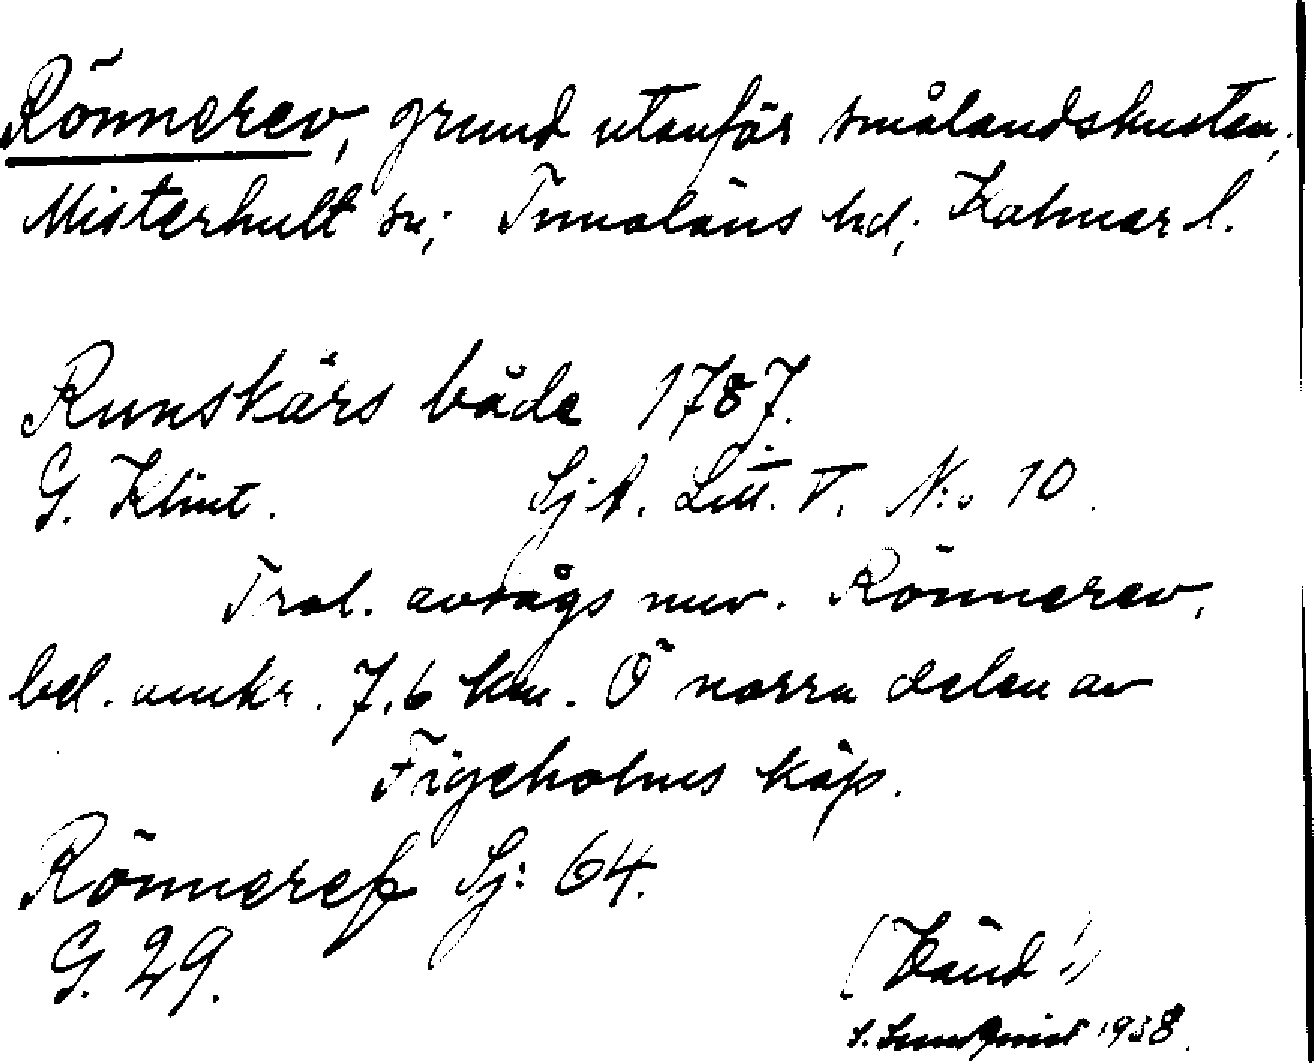 Rönnerev, grund utanför smålandskusten,
Misterhult sn; Tunaläns hd; Kalmar l.
Runskärs både 1787.
G. Klint. Sj. A. Litt. V. N:o 10.
Trol. avsågs nuv. Rönnerev,
bel. omkr. 7,6 km. Ö norra delen av
Figeholms köp.
Rönneref Sj: 64.
G. 29.
(Känd!)
S. 1938.